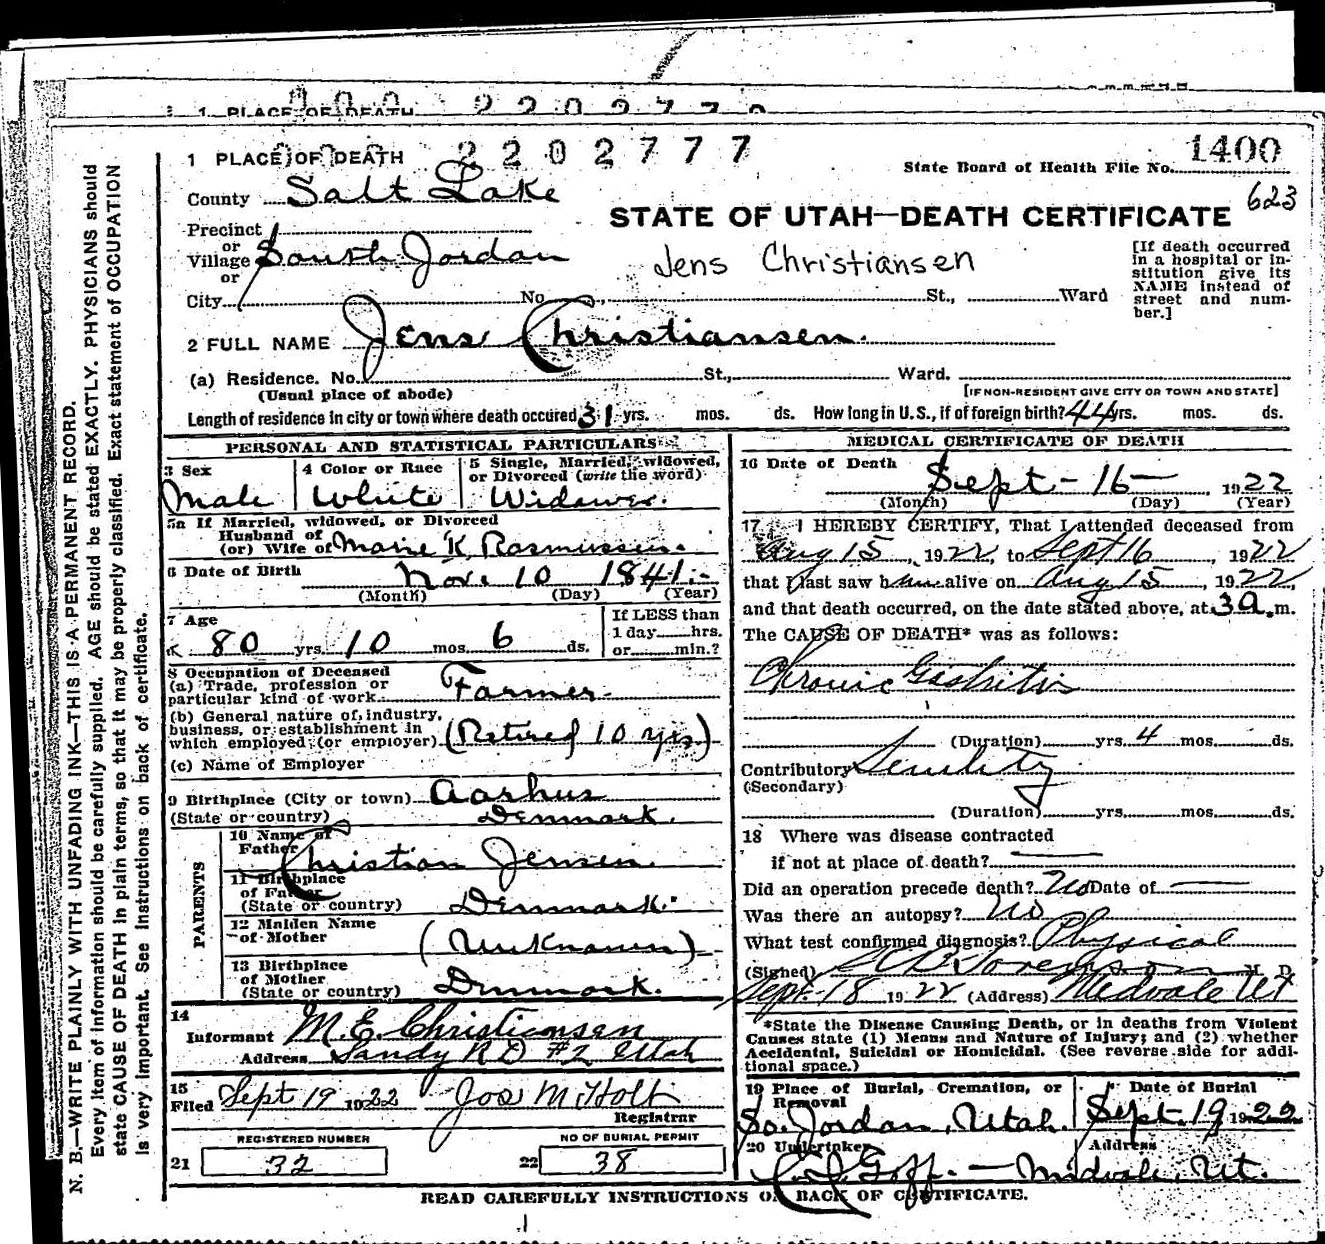 1 PLACE OF DEATH 2202779
1 PLACE OF DEATH 2202777
State Board of Health File No. 1400
County Salt Lake
623
STATE OF UTAH—DEATH CERTIFICATE
Precinct
or
Village South Jordan
or
Jens Christiansen
[If death occurred in a hospital or in-
stitution give its
NAME instead of
street and num-
ber.]
City No. St., Ward
2 FULL NAME Jens Christiansen.
(a) Residence. No. St., Ward.
(Usual place of abode)
[IF NON-RESIDENT GIVE CITY OR TOWN AND STATE]
Length of residence in city or town where death occured 31 yrs. mos. ds. How long in U. S., if of foreign birth? 44 yrs. mos. ds.
PERSONAL AND STATISTICAL PARTICULARS
3 Sex
Male
4 Color or Race
White
5 Single, Married, widowed,
or Divorced (write the word)
Widower.
5a If Married, widowed, or Divorced
Husband of
(or) Wife of Marie K. Rasmussen.
6 Date of Birth Nov. 10 1841.
(Month) (Day) (Year)
7 Age
80 yrs. 10 mos. 6 ds.
If LESS than
1 day hrs.
or min.?
8 Occupation of Deceased
(a) Trade, profession or
particular kind of work Farmer
(b) General nature of industry,
business, or establishment in
which employed (or employer) (Retired 10 yrs)
(c) Name of Employer
9 Birthplace (City or town) Aarhus
(State or country) Denmark.
PARENTS
10 Name of
Father Christian Jensen.
11 Birthplace
of Father
(State or country) Denmark.
12 Maiden Name
of Mother (Unknown)
13 Birthplace
of Mother
(State or country) Denmark.
14
Informant M. E. Christiansen
Address Sandy RD #2 Utah
15
Filed Sept 19 1922 Jos M Holt
Registrar
REGISTERED NUMBER
21 32
NO OF BURIAL PERMIT
22 38
MEDICAL CERTIFICATE OF DEATH
16 Date of Death
Sept - 16 — 1922
(Month) (Day) (Year)
17 I HEREBY CERTIFY, That I attended deceased from
Aug 15, 1922, to Sept 16, 1922
that I last saw him alive on Aug 15, 1922,
and that death occurred, on the date stated above, at 3 a.m.
The CAUSE OF DEATH* was as follows:
Chronic Gastritis
(Duration) yrs. 4 mos. ds.
Contributory Senility
(Secondary)
(Duration) yrs. mos. ds.
18 Where was disease contracted
if not at place of death?
Did an operation precede death? No Date of
Was there an autopsy? No
What test confirmed diagnosis? Physical
(Signed) M. D.
Sept. 18 1922 (Address) Midvale Ut
*State the Disease Causing Death, or in deaths from Violent
Causes state (1) Means and Nature of Injury; and (2) whether
Accidental, Suicidal or Homicidal. (See reverse side for addi-
tional space.)
19 Place of Burial, Cremation, or
Removal
So. Jordan, Utah.
Date of Burial
Sept. 19 1922
20 Undertaker
Goff. — Midvale, Ut.
Address
READ CAREFULLY INSTRUCTIONS ON BACK OF CERTIFICATE.
N. B.—WRITE PLAINLY WITH UNFADING INK—THIS IS A PERMANENT RECORD.
Every item of information should be carefully supplied. AGE should be stated EXACTLY. PHYSICIANS should
state CAUSE OF DEATH in plain terms, so that it may be properly classified. Exact statement of OCCUPATION
is very important. See instructions on back of certificate.